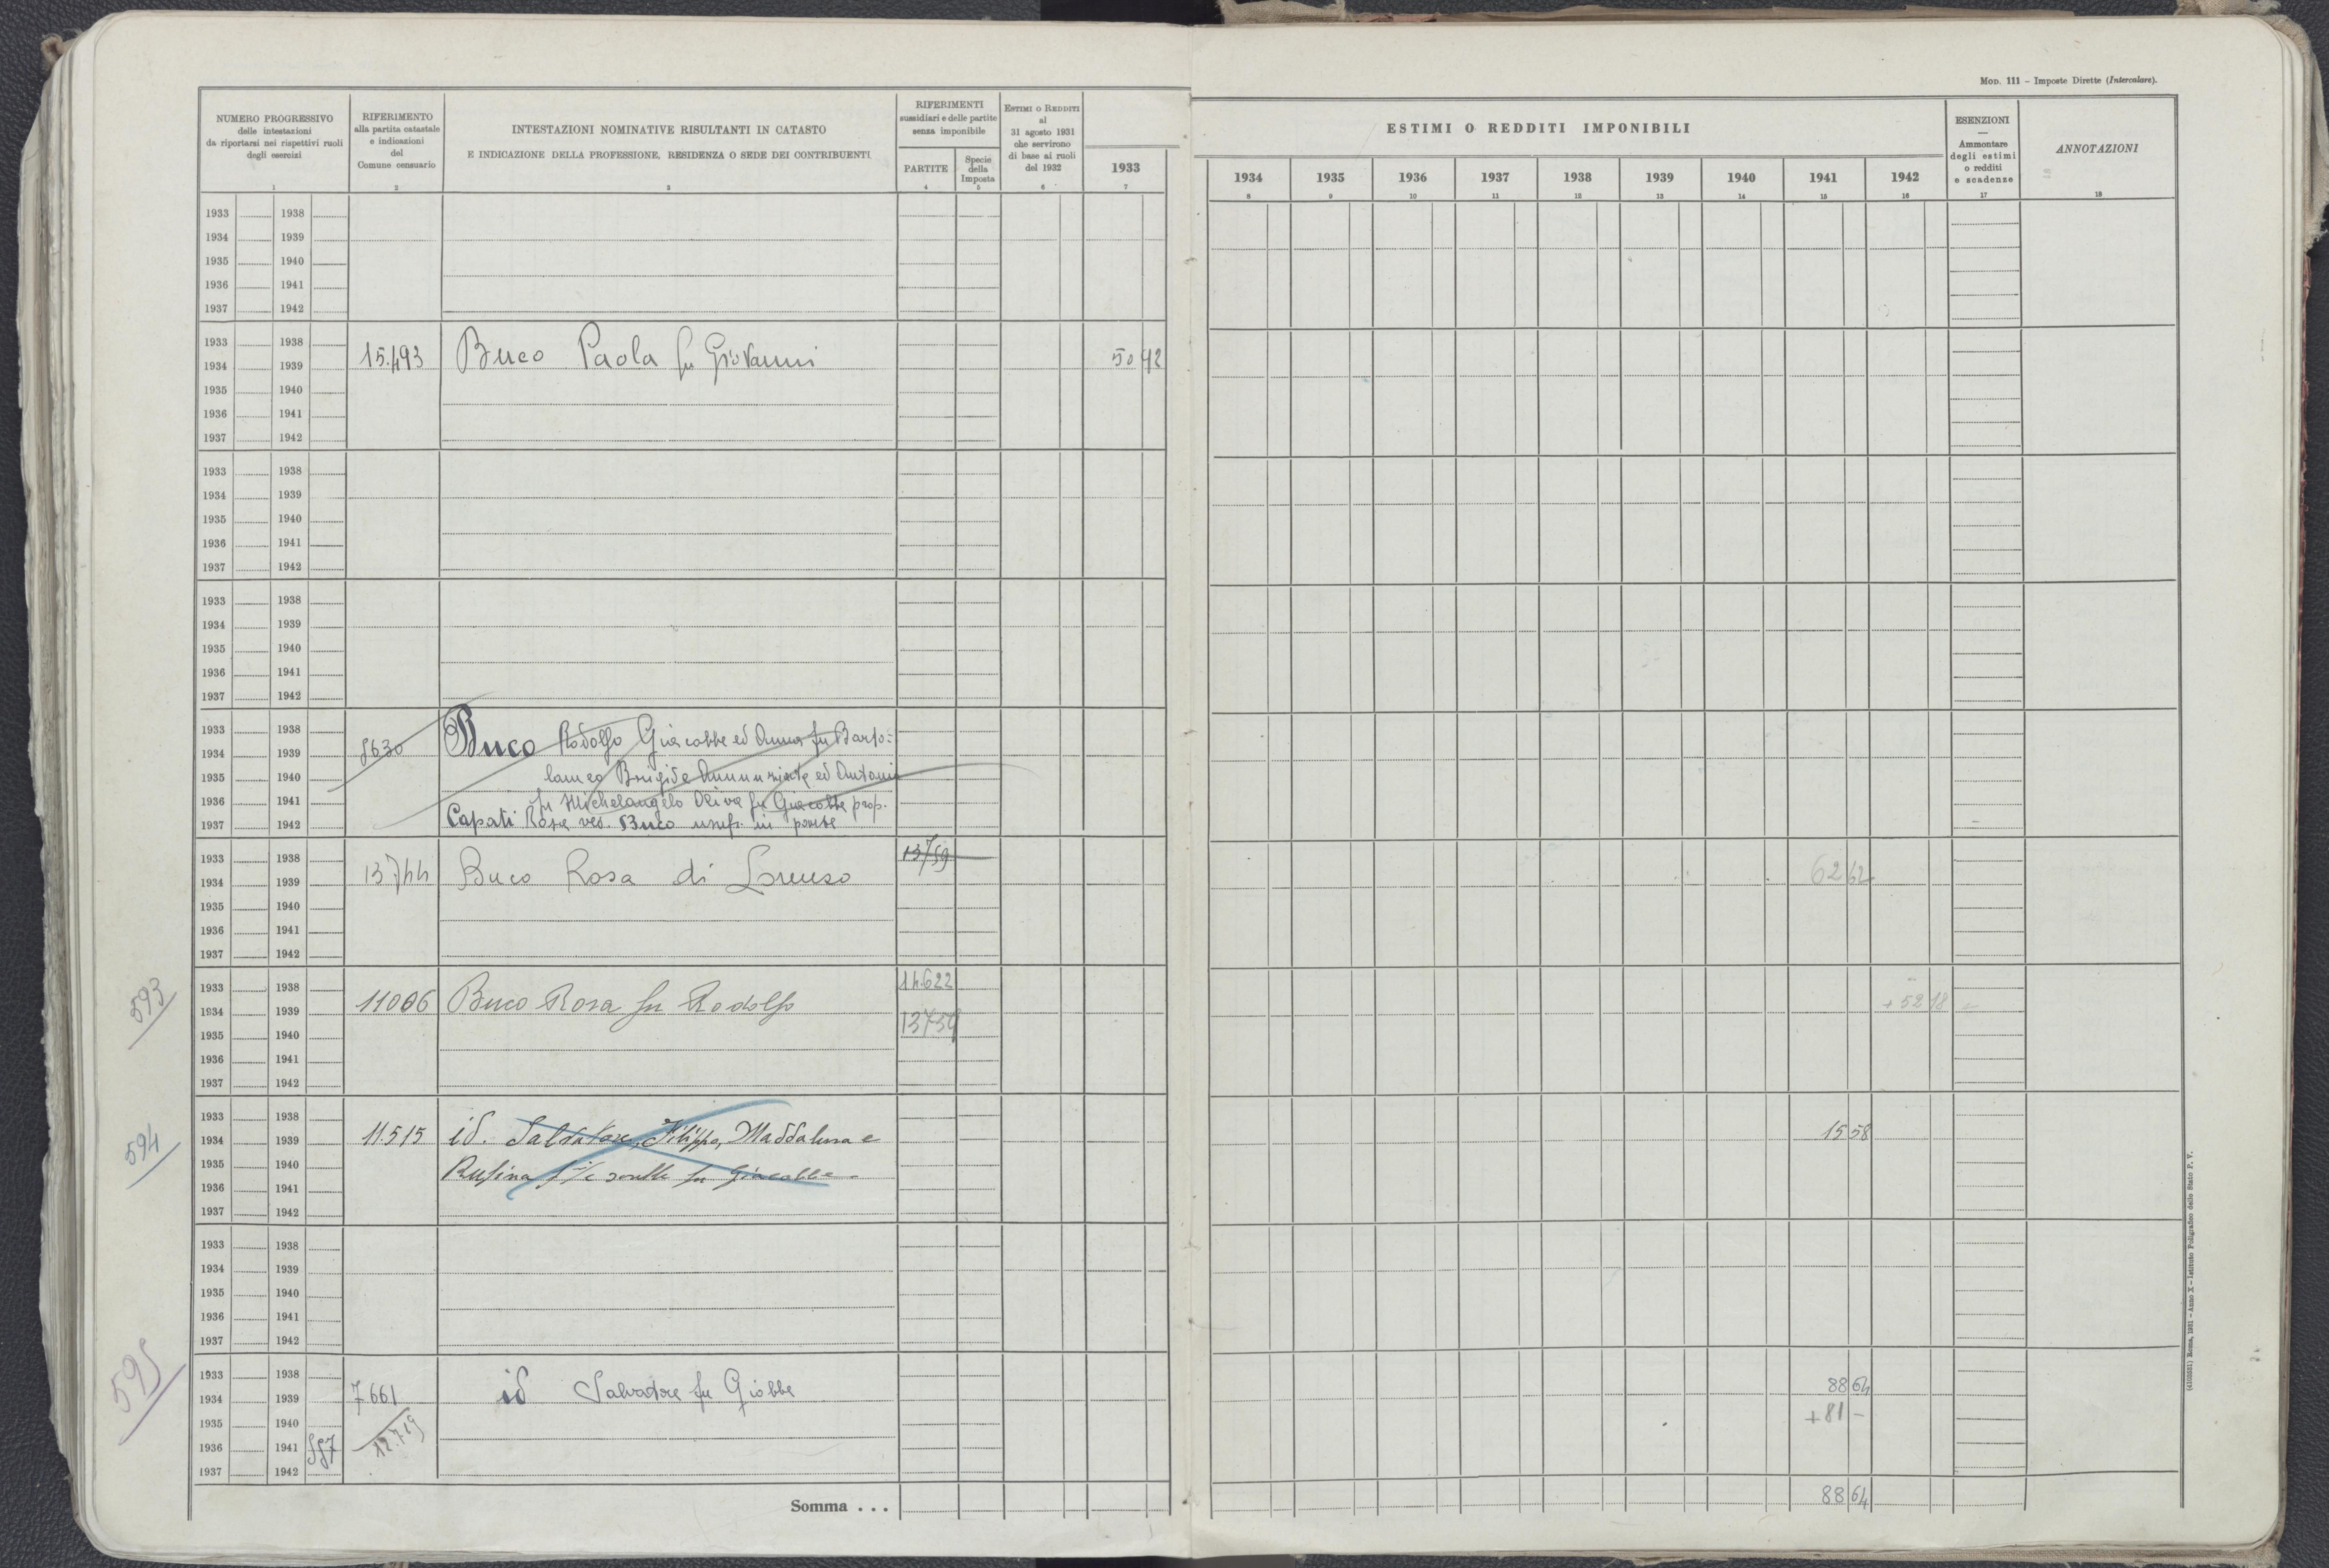 MOD. 111 – Imposte Dirette (Intercalare).
NUMERO PROGRESSIVO
delle intestazioni
da riportarsi nei rispettivi ruoli
degli esercizi
1
RIFERIMENTO
alla partita catastale
e indicazioni
del
Comune censuario
2
INTESTAZIONI NOMINATIVE RISULTANTI IN CATASTO
E INDICAZIONE DELLA PROFESSIONE, RESIDENZA O SEDE DEI CONTRIBUENTI
3
RIFERIMENTI
sussidiari e delle partite
senza imponibile
PARTITE
4
Specie
della
Imposta
5
ESTIMI O REDDITI
al
31 agosto 1931
che servirono
di base ai ruoli
del 1932
6
1933
7
ESTIMI O REDDITI IMPONIBILI
1934 1935 1936 1937 1938 1939 1940 1941 1942
8 9 10 11 12 13 14 15 16
ESENZIONI
—
Ammontare
degli estimi
o redditi
e scadenze
17
ANNOTAZIONI
18
1933 1938
1934 1939
1935 1940
1936 1941
1937 1942
1933 1938
15.493 Buco Paola fu Giovanni 50 42
1934 1939
1935 1940
1936 1941
1937 1942
1933 1938
1934 1939
1935 1940
1936 1941
1937 1942
1933 1938
1934 1939
1935 1940
1936 1941
1937 1942
1933 1938
8630 Buco Rodolfo Giacobbe ed Anna fu Barto=
1934 1939
1935 1940 lomeo Brigida Annunziata ed Antonia
1936 1941 fu Michelangelo Oliva fu Giacobbe prop.
1937 1942 Capati Rosa ved. Buco usuf. in parte
1933 1938 13759
13744 Buco Rosa di Lorenzo 62 62
1934 1939
1935 1940
1936 1941
1937 1942
593
1933 1938 14.622
1934 1939 11006 Buco Rosa fu Rodolfo + 52 18
1935 1940 13759
1936 1941
1937 1942
594
1933 1938
1934 1939 11.515 id. Salvatore, Filippo, Maddalena e 15 58
1935 1940 Rufina fu Giacobbe
1936 1941
1937 1942
1933 1938
1934 1939
1935 1940
1936 1941
1937 1942
595
1933 1938
1934 1939 7661 id Salvatore fu Giobbe 88 64
1935 1940 12.719 +81 –
1936 1941
1937 1942
Somma . . . 88 64
(4103551) Roma, 1931 – Anno X – Istituto Poligrafico dello Stato P. V.